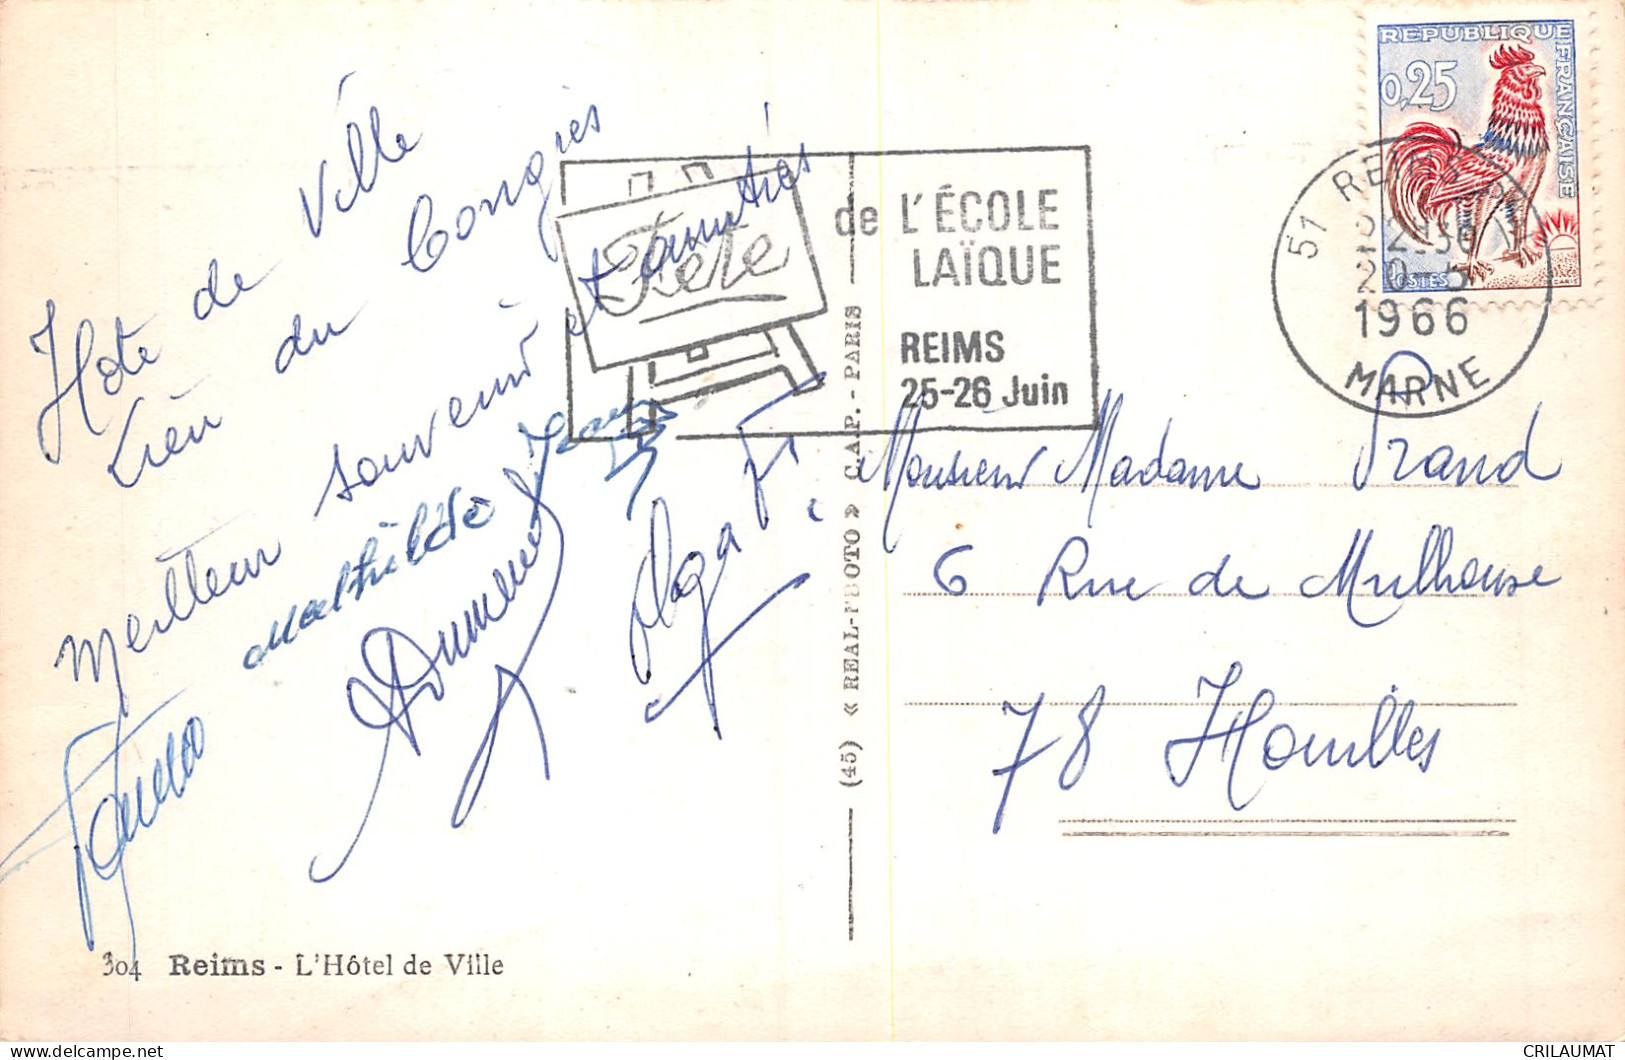 Hote de Ville
Lieu du Congrès
Meilleur souvenir et amitiés
Mathilde
Olga
304 Reims - L'Hôtel de Ville
(45) « REAL-PHOTO » C.A.P. - PARIS
Fête
de L'ÉCOLE
LAÏQUE
REIMS
25-26 Juin
REPUBLIQUE FRANÇAISE
0,25
POSTES
51 REIMS
20-5
1966
MARNE
Monsieur Madame Prand
6 Rue de Mulhouse
78 Houilles
CRILAUMAT